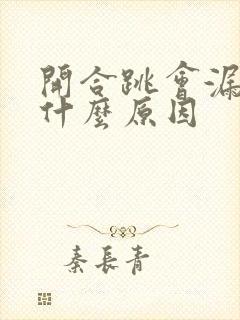 開合跳會漏
什麼原因
秦長青